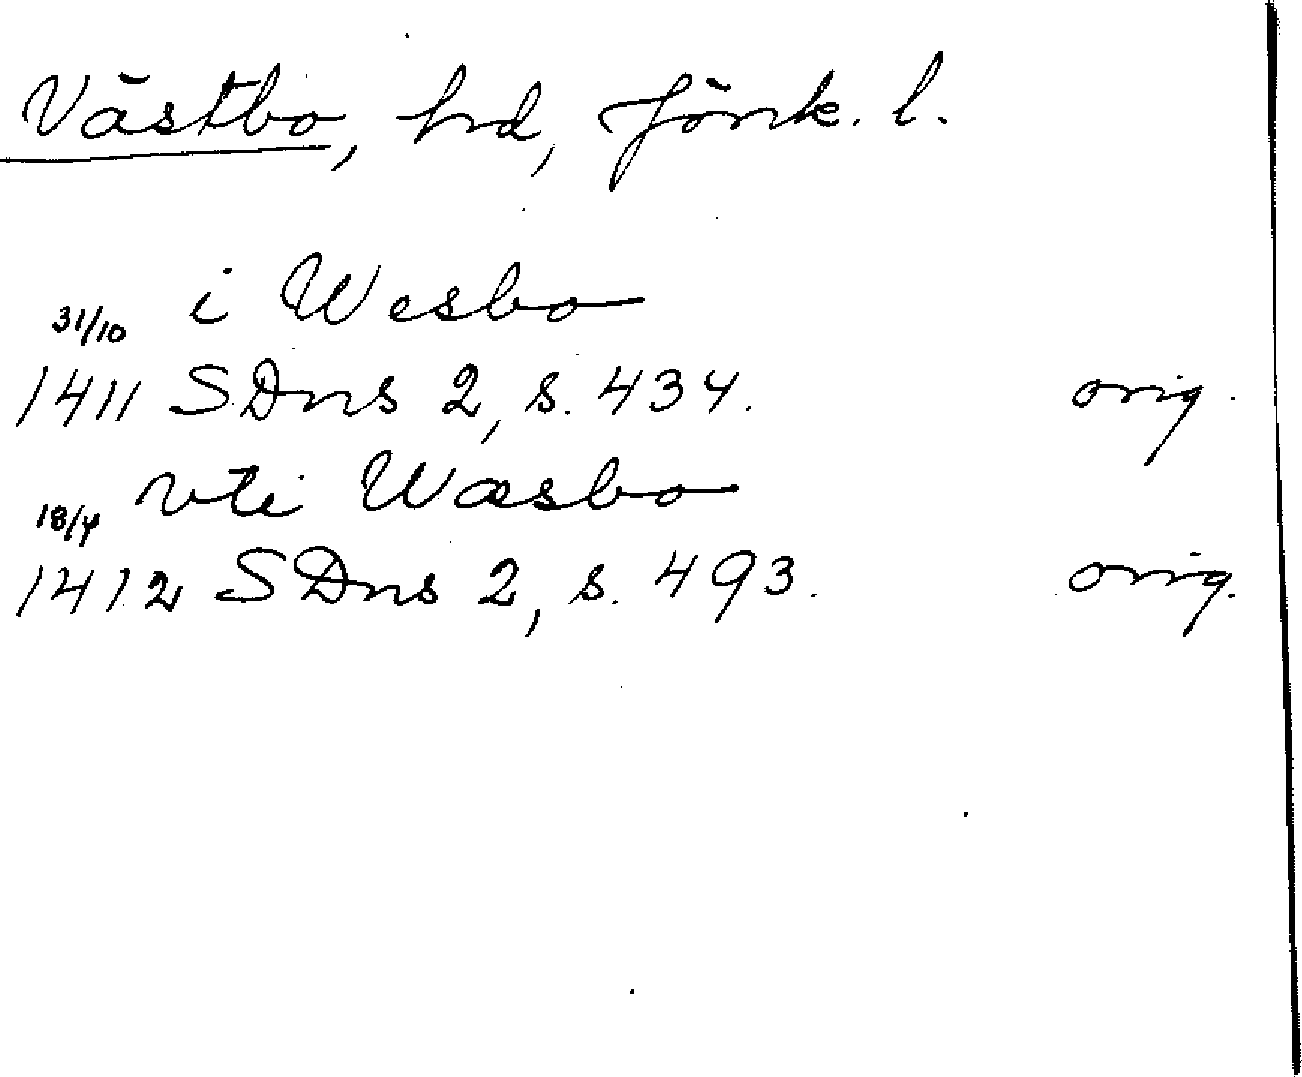 Västbo, hd, Jönk. l.
i Wesbo
31/10
1411 SDns 2, s. 434. orig.
vti Wæsbo
18/4
1412 SDns 2, s. 493. orig.